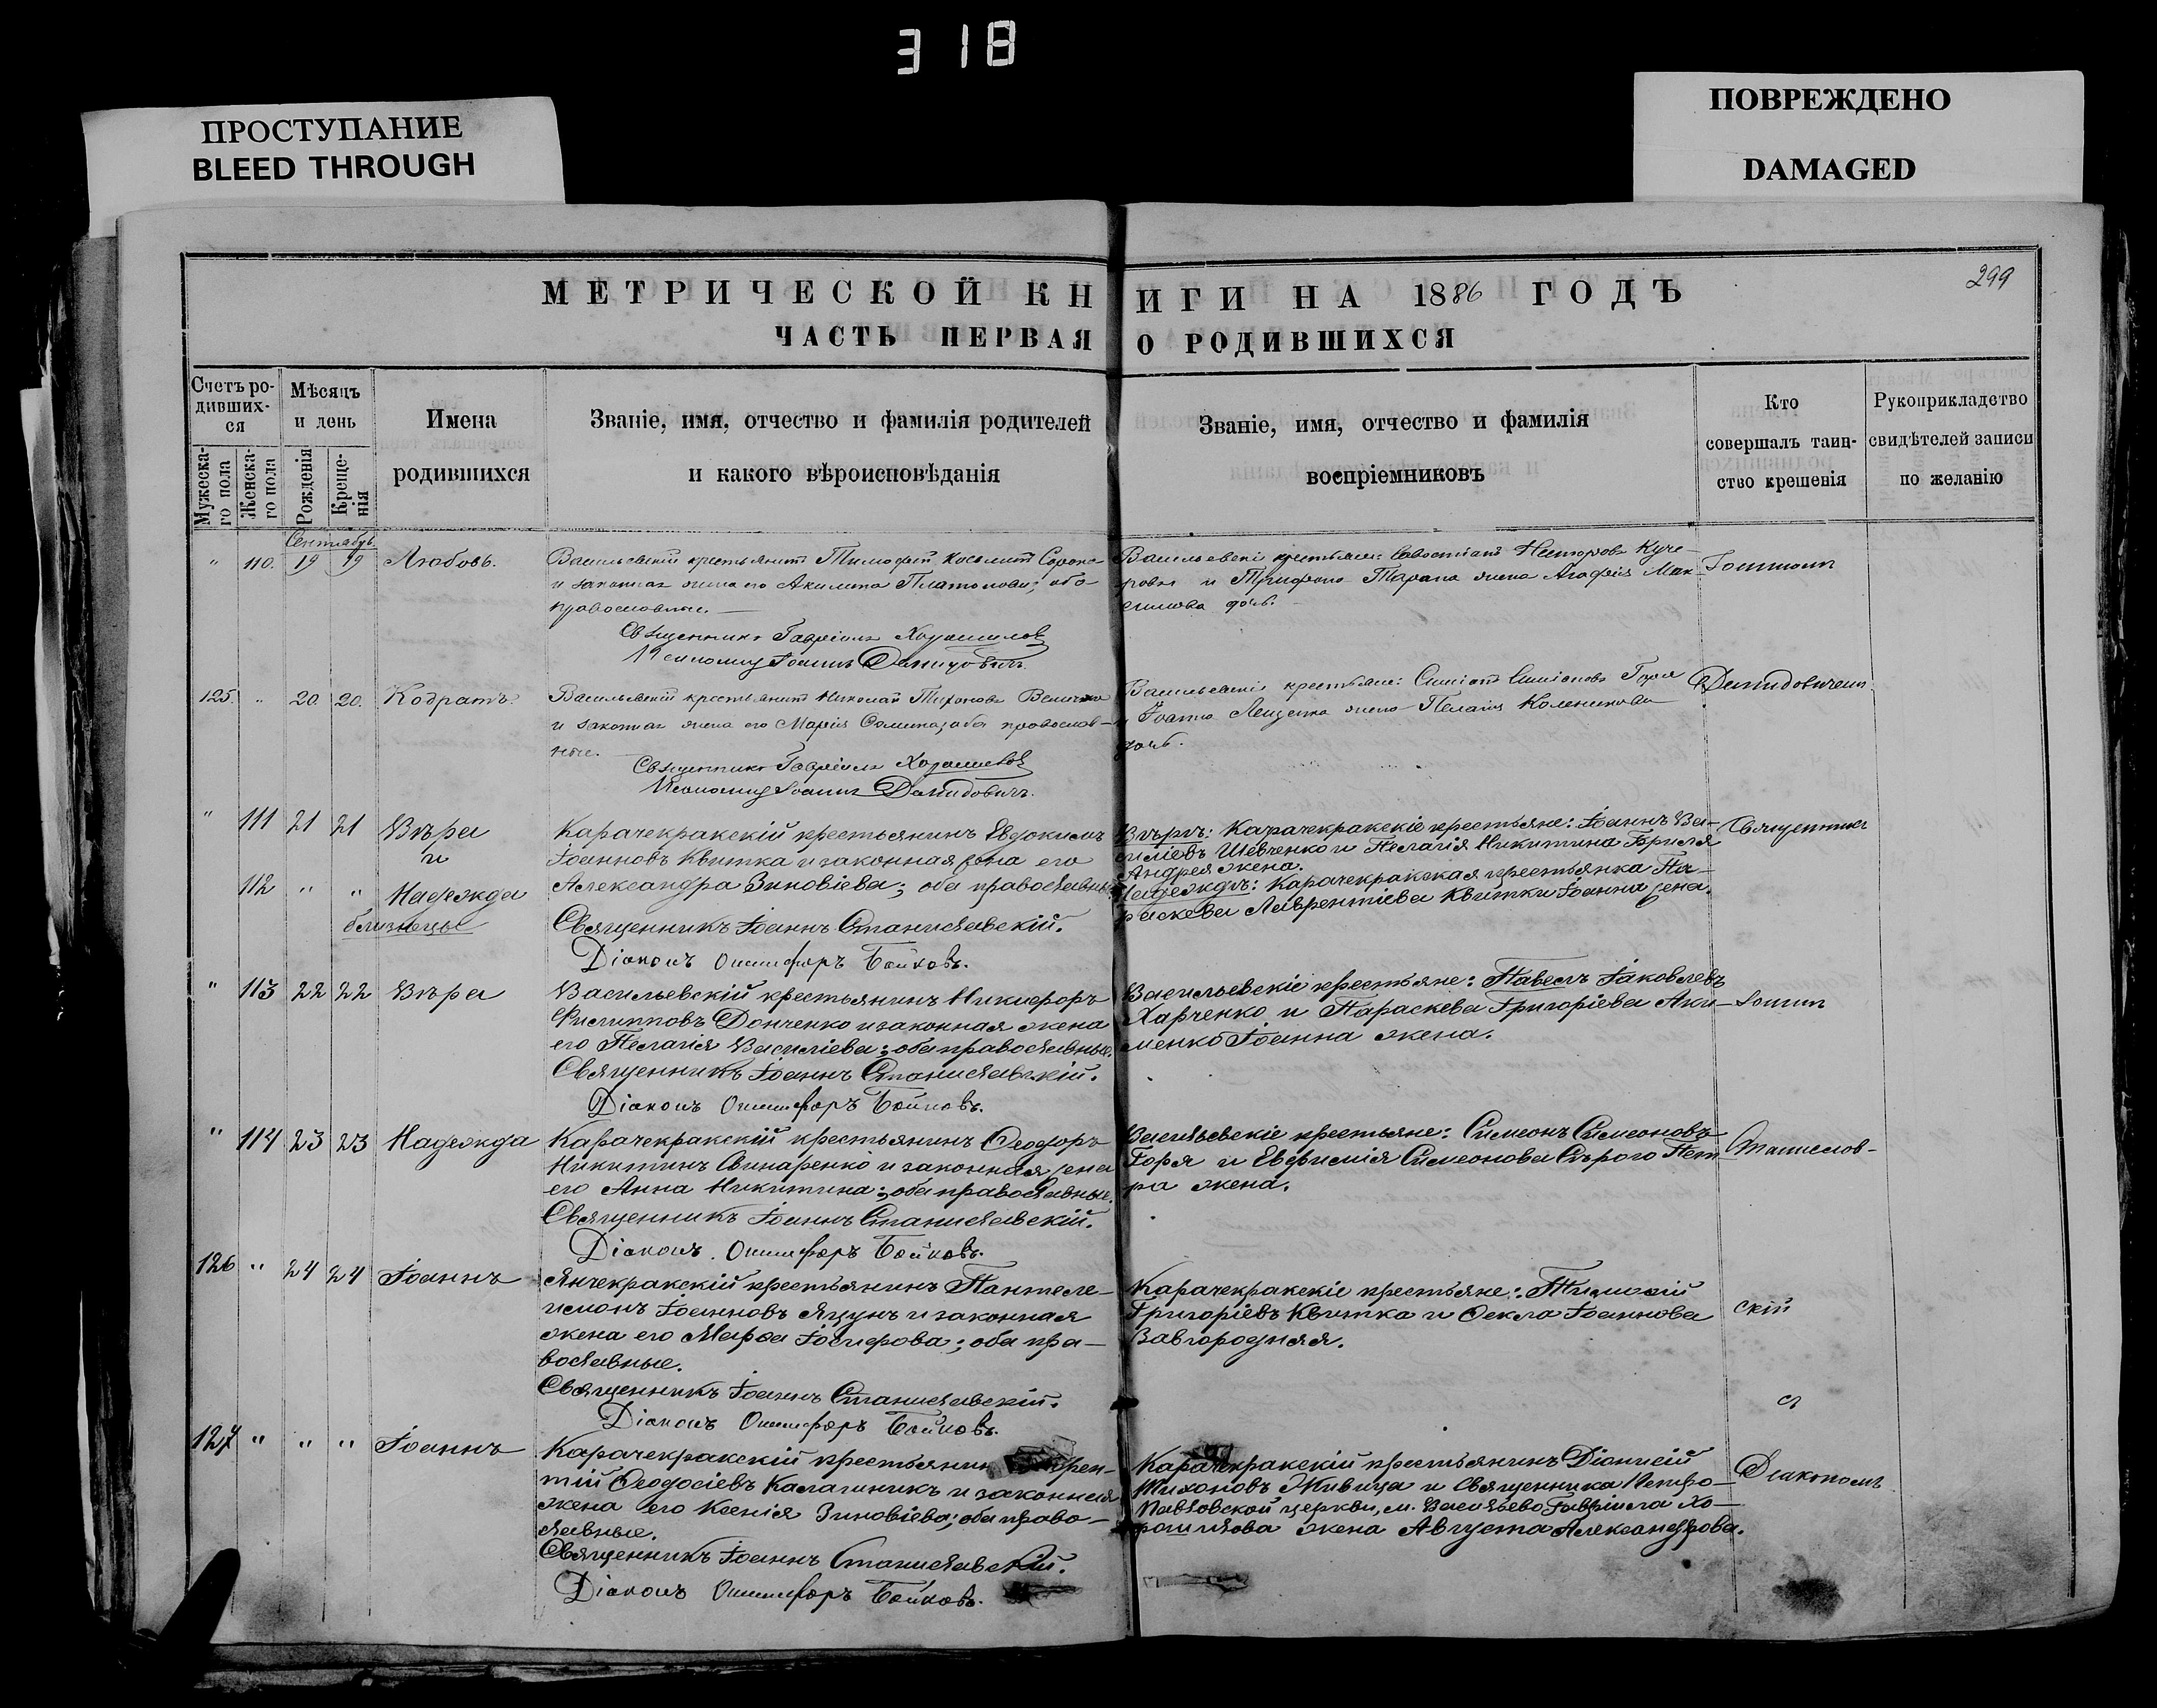 318
ПРОСТУПАНИЕ
BLEED THROUGH
ПОВРЕЖДЕНО
DAMAGED
299
МЕТРИЧЕСКОЙ КНИГИ НА 1886 ГОДЪ
ЧАСТЬ ПЕРВАЯ О РОДИВШИХСЯ
Счетъ ро-
дивших-
ся
Мужеска-
го пола
Женска-
го пола
Мѣсяцъ
и день
Рожденія
Креще-
нія
Имена
родившихся
Званіе, имя, отчество и фамилія родителей
и какого вѣроисповѣданія
Званіе, имя, отчество и фамилія
воспріемниковъ
Кто
совершалъ таин-
ство крещенія
Рукоприкладство
свидѣтелей записи
по желанію
" 110. 19 19 Любовь.
Васильевскій крестьянинъ Тимофей
и законная жена его Акилина Платонова; оба
православные.
Священникъ Гавріилъ
Іоаннъ Демидовичъ.
Васильевскіе крестьяне: Несторовъ Куче-
ровъ и Трифона Тарана жена Агафія Мак-
симова дочь.
125. " 20. 20. Кодратъ.
Васильевскій крестьянинъ Николай Тихоновъ Величко
и законная жена его Марія оба православ-
ные.
Священникъ Гавріилъ
Іоаннъ Демидовичъ.
Васильевскіе крестьяне: Симеоновъ Горя
и Іоанна Лещенка жена Пелагія
дочь.
Демидовичемъ.
" 111 21 21 Вѣра
и
112 " " Надежда
близнецы
Карачекракскій крестьянинъ Евдокимъ
Іоанновъ Квитка и законная жена его
Александра Зиновіева; оба православные.
Священникъ Іоаннъ Станиславскій.
Діаконъ Онисифоръ Бойковъ.
Вѣръ: Карачекракскіе крестьяне: Іоаннъ Ва-
силіевъ Шевченко и Пелагія Никитина Бриля
Андрея жена.
Надеждъ: Карачекракская крестьянка Па-
раскева Лаврентіева Квитки Іоанна жена.
Священник
" 113 22 22 Вѣра
Васильевскій крестьянинъ Никифоръ
Филипповъ Донченко и законная жена
его Пелагія Василіева; оба православные.
Священникъ Іоаннъ Станиславскій.
Діаконъ Онисифоръ Бойковъ.
Васильевскіе крестьяне: Павелъ Іаковлевъ
Харченко и Параскева Григоріева Аки-
менко Іоанна жена.
" 114 23 23 Надежда
Карачекракскій крестьянинъ Ѳеодоръ
Никитинъ Свинаренко и законная жена
его Анна Никитина; оба православные.
Священникъ Іоаннъ Станиславскій.
Діаконъ Онисифоръ Бойковъ.
Васильевскіе крестьяне: Симеонъ Симеоновъ
Горя и Евфимія Симеонова Сѣраго Пет-
ра жена.
Станислав-
126 " 24 24 Іоаннъ
Янчекракскій крестьянинъ Пантеле-
имонъ Іоанновъ Яцунъ и законная
жена его Марѳа Іосифова; оба пра-
вославные.
Священникъ Іоаннъ Станиславскій.
Діаконъ Онисифоръ Бойковъ.
Карачекракскіе крестьяне: Тимоѳей
Григоріевъ Квитка и Ѳекла Іоаннова
Завгородняя.
скій
с
127 " " " Іоаннъ
Карачекракскій крестьянин
тій Ѳеодосіевъ Калашникъ и законная
жена его Ксенія Зиновіева; оба право-
славные.
Священникъ Іоаннъ Станиславскій.
Діаконъ Онисифоръ Бойковъ.
Карачекракскій крестьянинъ Діонисій
Тихоновъ Живица и Священника Петро-
Павловской церкви, м. Васильево Гавріила Хо-
рошилова жена Августа Александрова.
Діакономъ